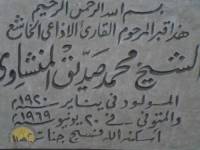 بسم الله الرحمن الرحيم
هذا قبر المرحوم القارئ الاذاعى الخاشع
الشيخ محمد صديق المنشاوى
المولود فى يناير ١٩٢٠م
والمتوفى فى ٢٠ يونيو ١٩٦٩م
اسكنه الله فسيح جناته